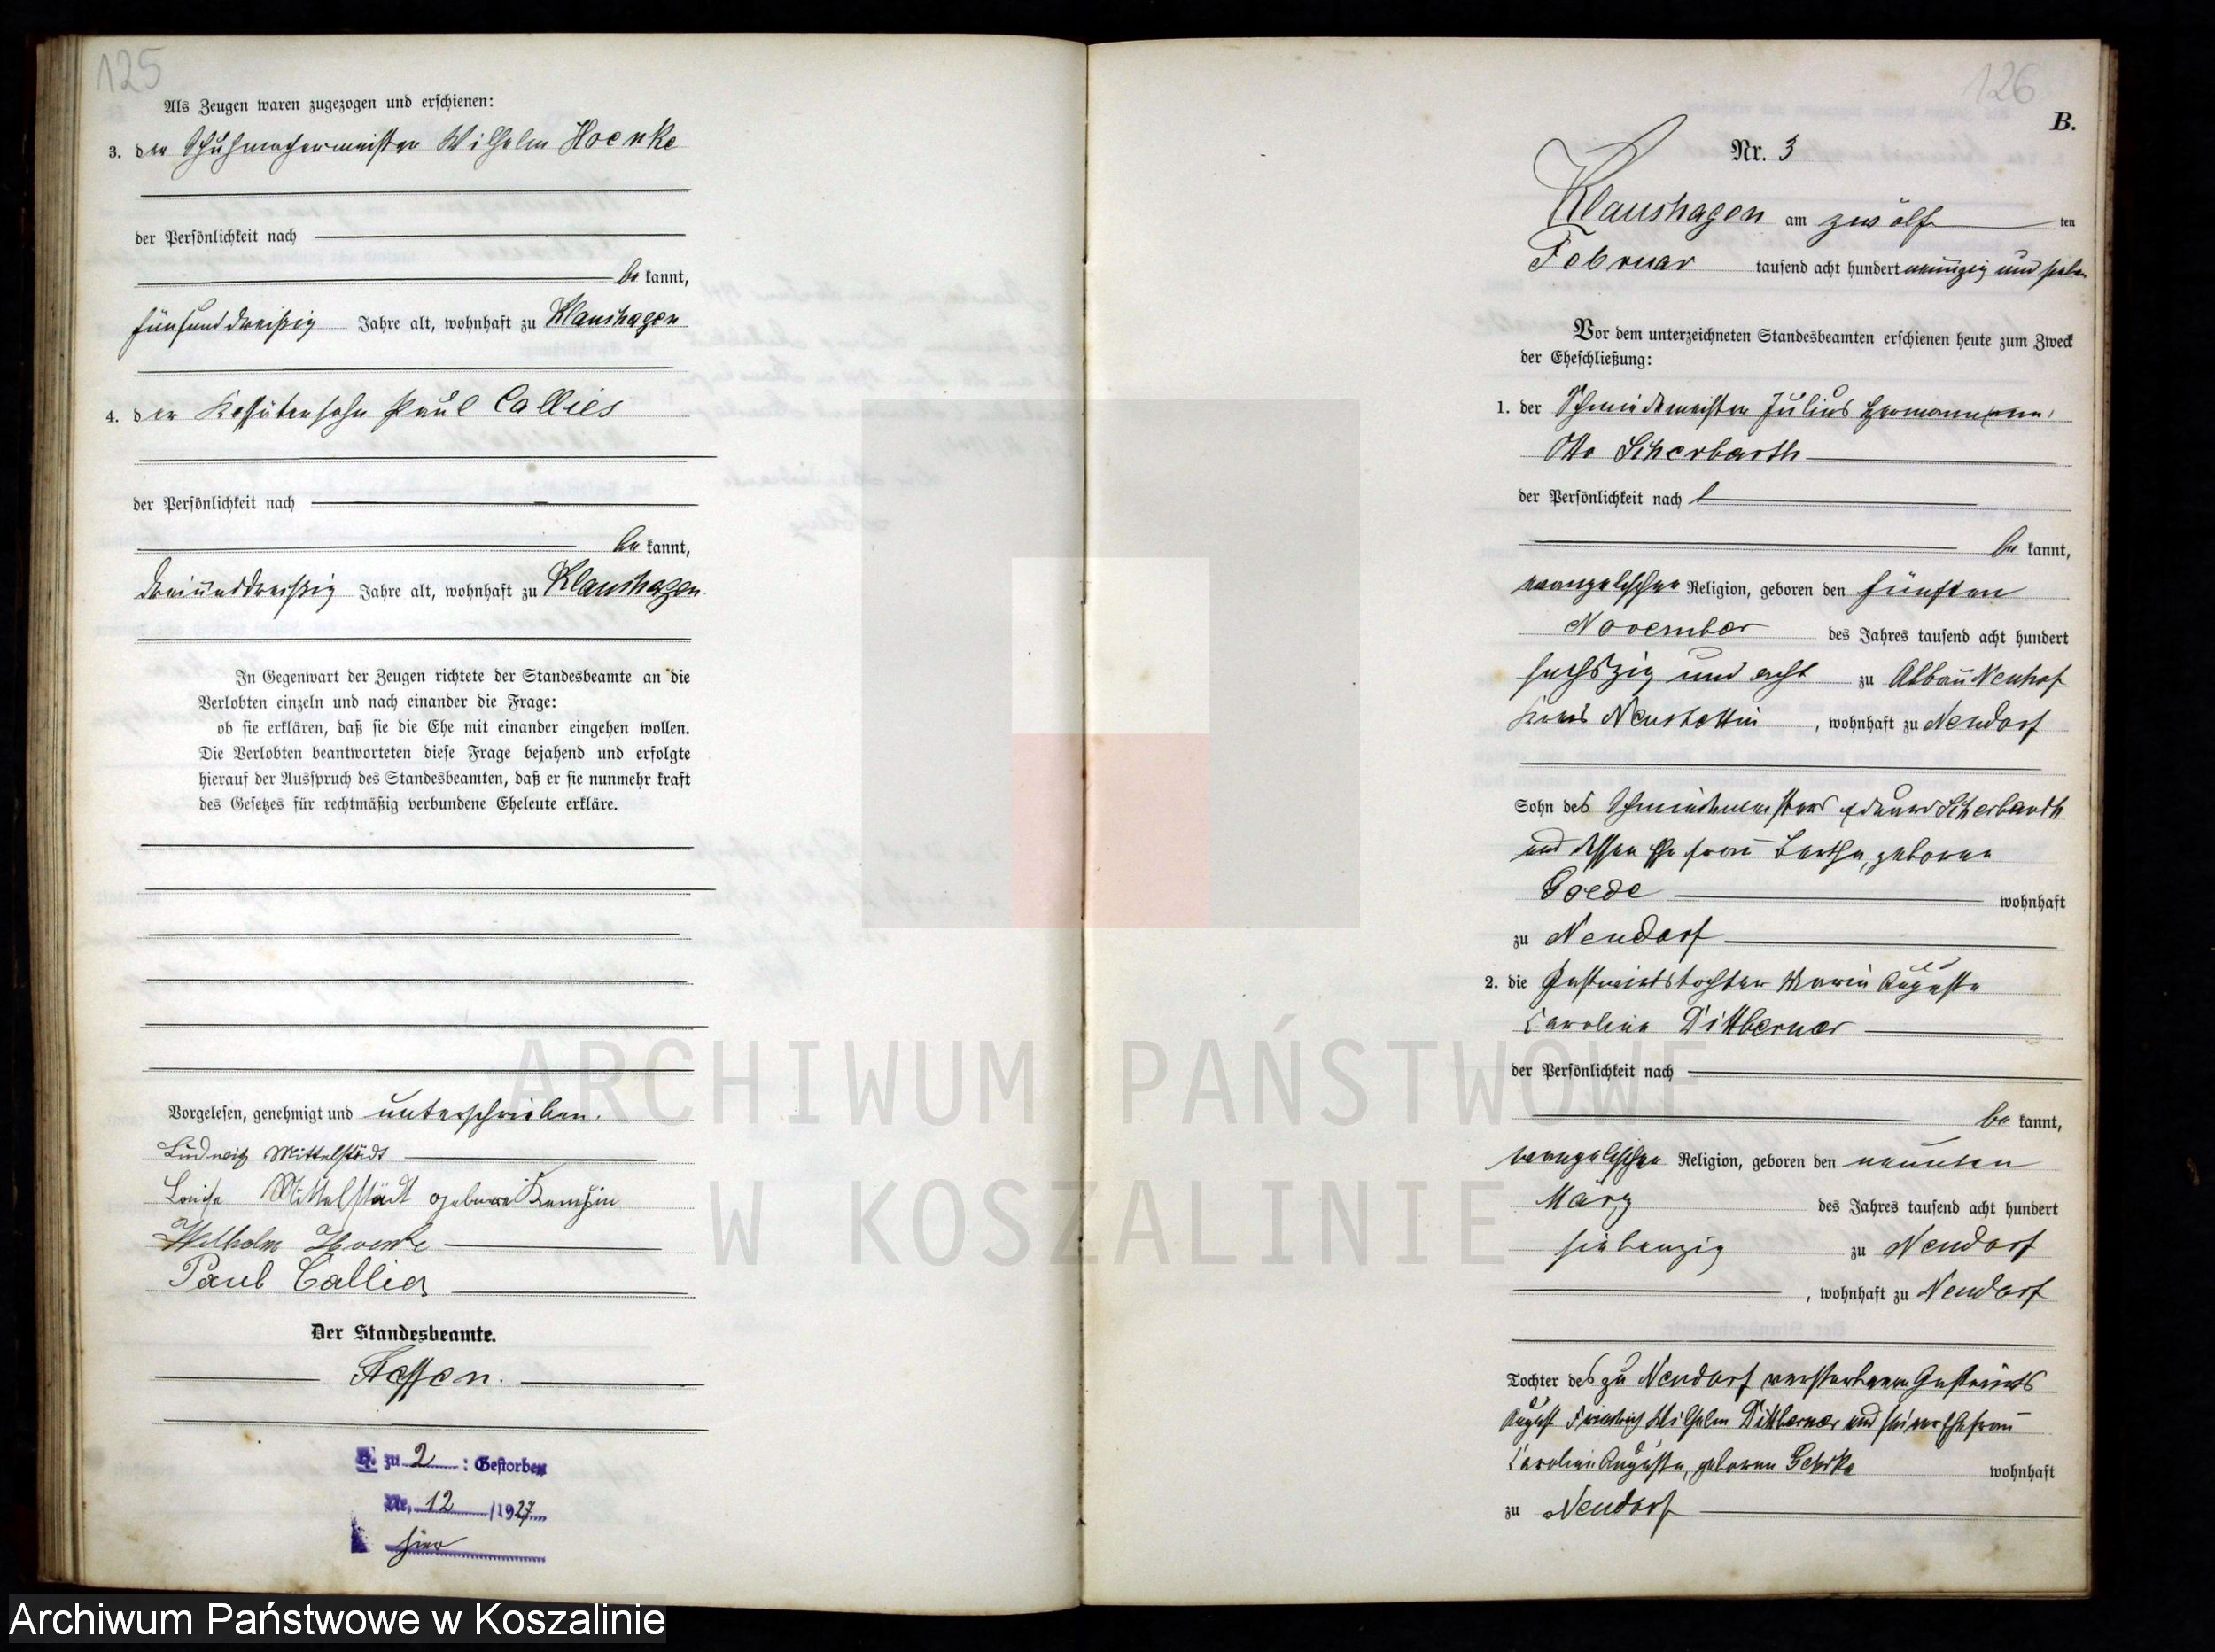 125
Als Zeugen waren zugezogen und erschienen:
3. der Schuhmachermeister Wilhelm Hoenke
der Persönlichkeit nach
be kannt,
fünfunddreißig Jahre alt, wohnhaft zu Klaushagen
4. der Kossätensohn Paul Callies
der Persönlichkeit nach
be kannt,
dreiunddreißig Jahre alt, wohnhaft zu Klaushagen.
In Gegenwart der Zeugen richtete der Standesbeamte an die
Verlobten einzeln und nach einander die Frage:
ob sie erklären, daß sie die Ehe mit einander eingehen wollen.
Die Verlobten beantworteten diese Frage bejahend und erfolgte
hierauf der Ausspruch des Standesbeamten, daß er sie nunmehr kraft
des Gesetzes für rechtmäßig verbundene Eheleute erkläre.
Vorgelesen, genehmigt und unterschrieben.
Ludwig Mittelstädt
Louise Mittelstädt geborene
Wilhelm Hoenke
Paul Callies
Der Standesbeamte.
H. zu 2 : Gestorben
Nr. 12 /1927
hier
126
B.
Nr. 3
Klaushagen am zwölf ten
Februar tausend acht hundert neunzig und sieben
Vor dem unterzeichneten Standesbeamten erschienen heute zum Zweck
der Eheschließung:
1. der Schmiedemeister Julius Hermann
Otto Scherbarth
der Persönlichkeit nach
be kannt,
evangelischer Religion, geboren den fünften
November des Jahres tausend acht hundert
sechszig und acht zu Abbau Neuhof
Kreis Neustettin , wohnhaft zu Neudorf
Sohn des Schmiedemeisters Eduard Scherbarth
und dessen Ehefrau Bertha, geborene
Goede wohnhaft
zu Neudorf
2. die Gastwirtstochter Marie Auguste
Caroline Dittberner
der Persönlichkeit nach
be kannt,
evangelischer Religion, geboren den neunten
März des Jahres tausend acht hundert
siebenzig zu Neudorf
, wohnhaft zu Neudorf
Tochter des zu Neudorf verstorbenen Gastwirts
August Friedrich Wilhelm Dittberner und seiner Ehefrau
Caroline Auguste, geborene Gehrke wohnhaft
zu Neudorf
ARCHIWUM PAŃSTWOWE
W KOSZALINIE
Archiwum Państwowe w Koszalinie